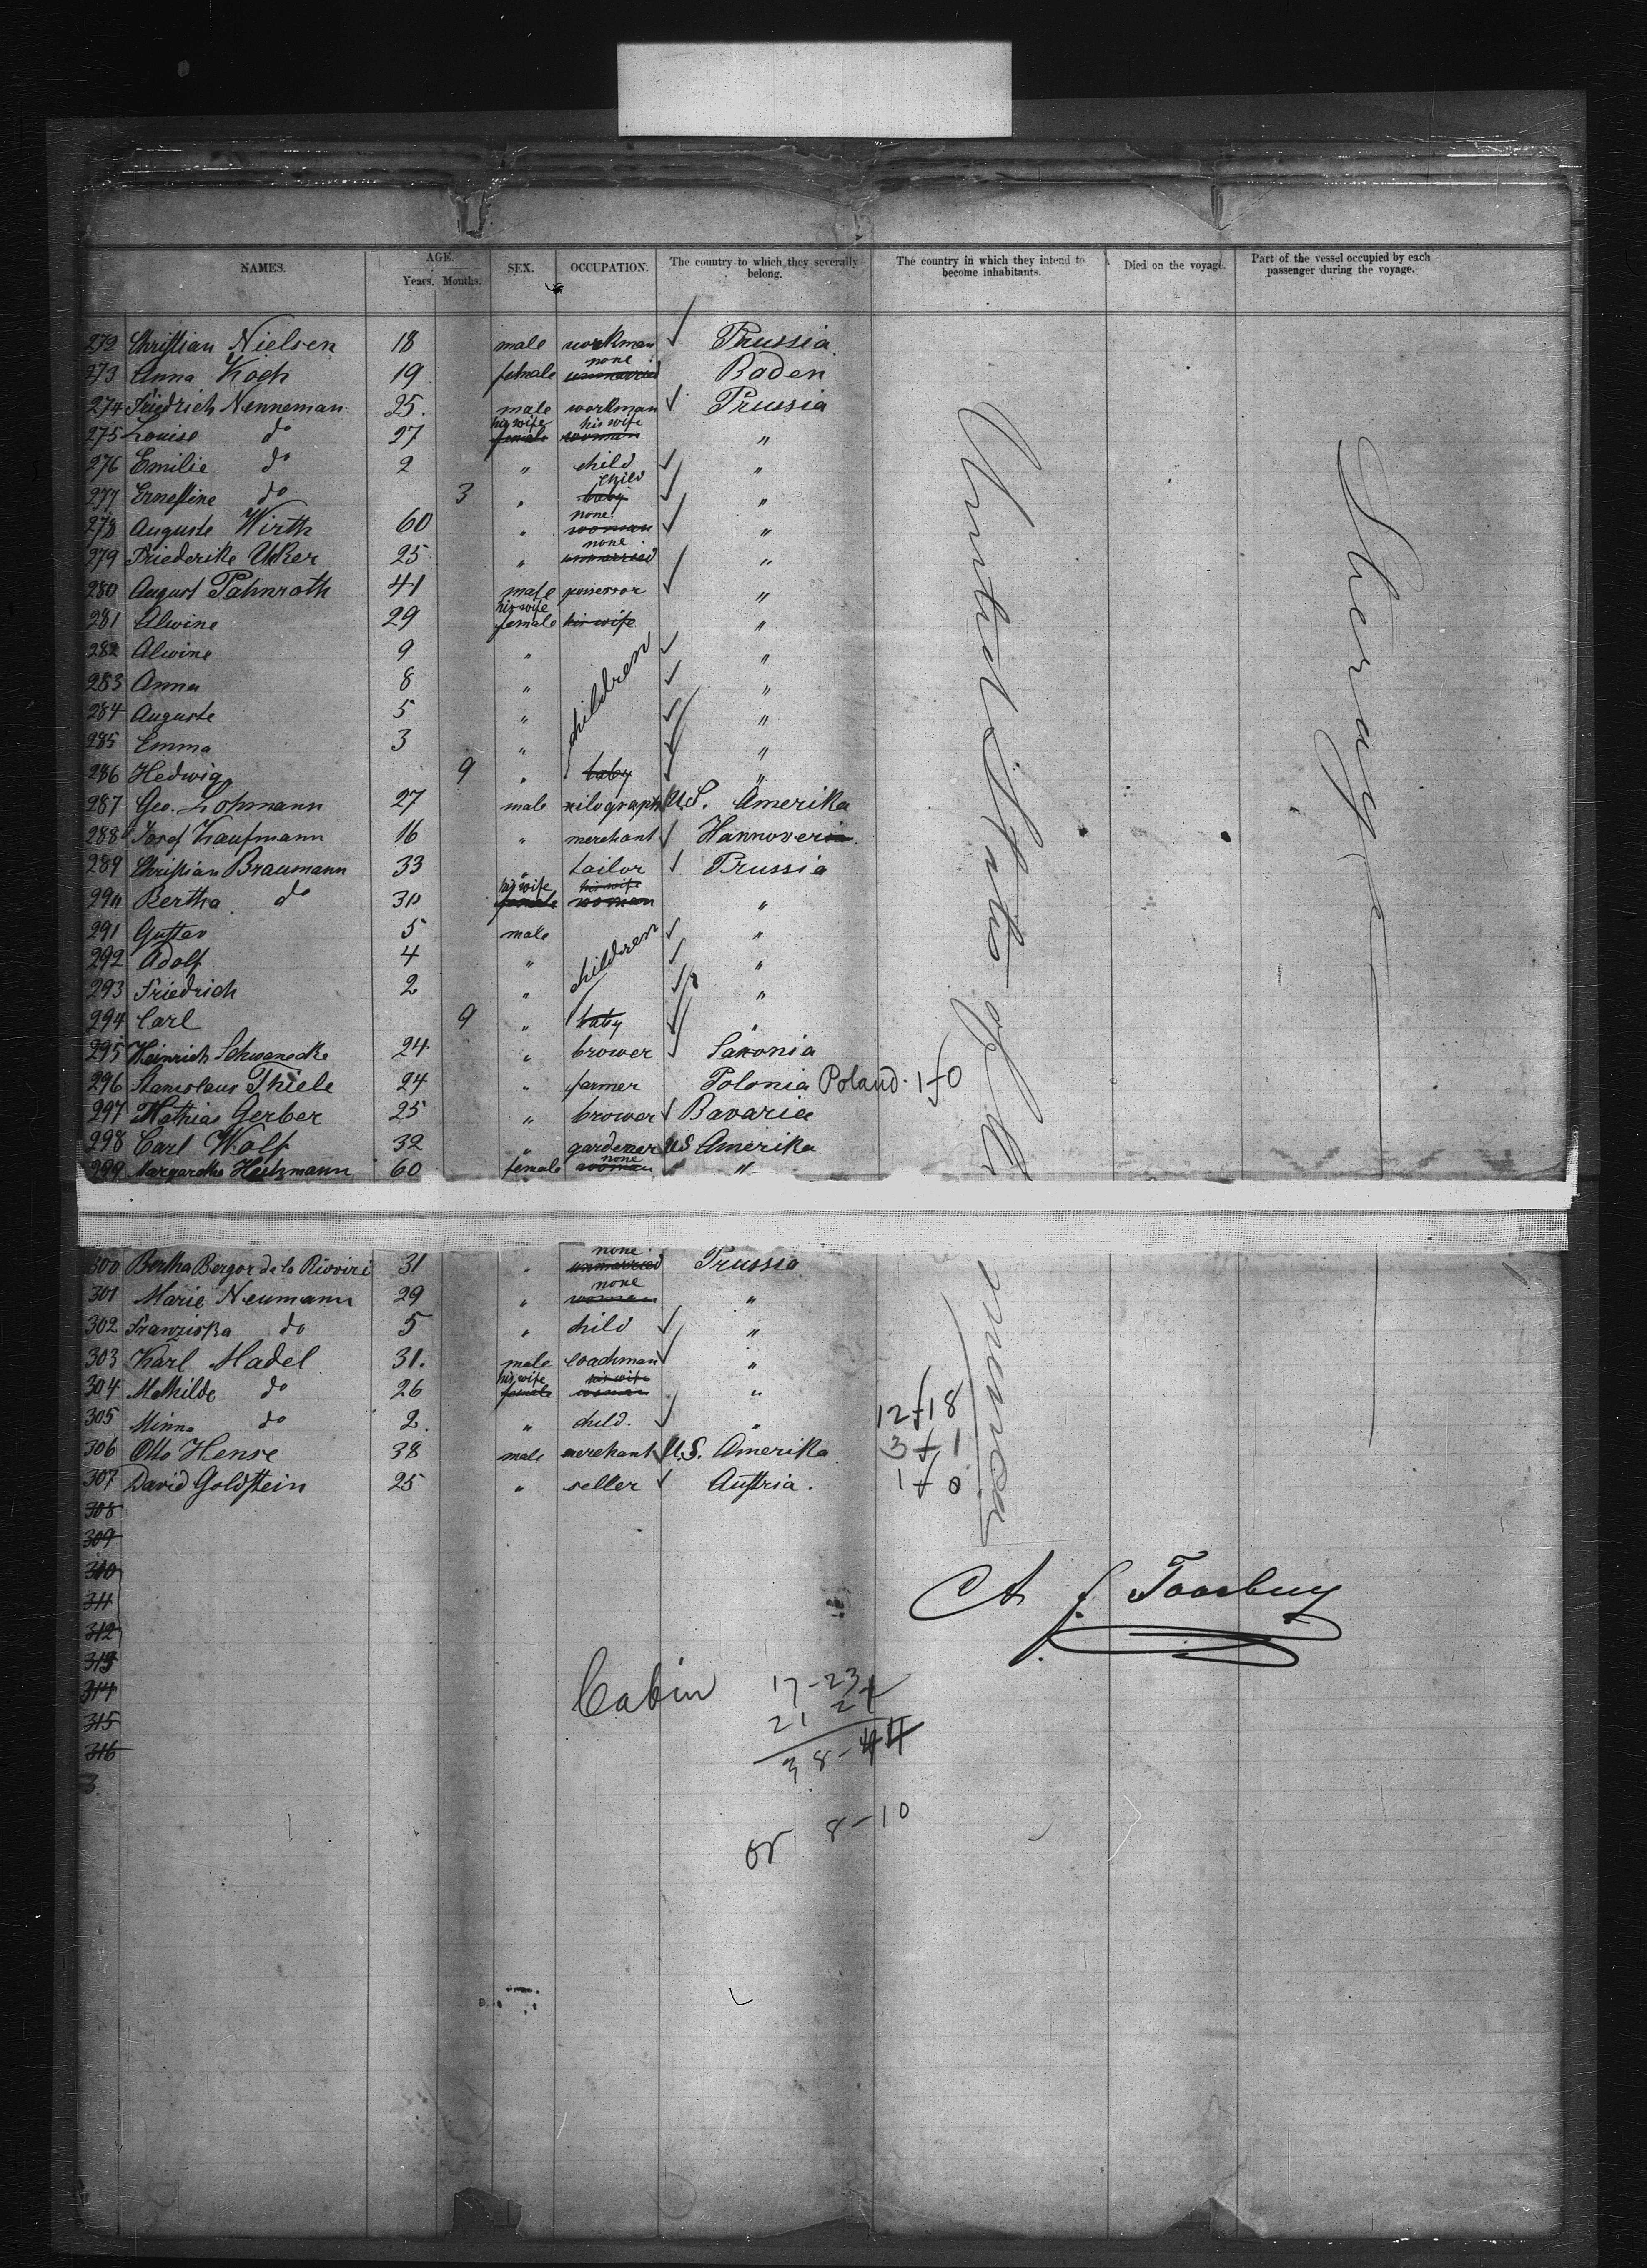 NAMES. AGE. Years. Months. SEX. OCCUPATION. The country to which they severally belong. The country in which they intend to become inhabitants. Died on the voyage. Part of the vessel occupied by each passenger during the voyage.
272 Christian Nielsen 18 male workman Prussia
273 Anna Koch 19 female none unmarried Baden
274 Friedrich Nenneman 25. male workman Prussia
275 Louise do 27 his wife female his wife woman "
276 Emilie do 2 " child "
277 Ernestine do 3 " child baby "
278 Auguste Wirth 60 " none woman "
279 Friederike Uker 25 " none unmarried "
280 August Pahnroth 41 male possessor "
281 Alwine 29 his wife female his wife "
282 Alwine 9 " children "
283 Anna 8 " "
284 Auguste 5 " "
285 Emma 3 " "
286 Hedwig 9 " baby "
287 Geo. Lohmann 27 male xilograph U.S. Amerika
288 Josef Kaufmann 16 " merchant Hannoveria
289 Christian Braumann 33 " tailor Prussia
290 Bertha do 30 his wife female his wife woman "
291 Gustav 5 male children "
292 Adolf 4 " "
293 Friedrich 2 " "
294 Carl 9 " baby "
295 Heinrich Schwanecke 24 " brower Saxonia
296 Stanislaus Thiele 24 " farmer Polonia Poland. 1-0
297 Mathias Gerber 25 " brower Bavaria
298 Carl Wolf 32 " gardener US Amerika
299 Margaretha Heitzmann 60 female none woman "
300 Bertha Berger de la 31 " none unmarried Prussia
301 Marie Neumann 29 " none woman "
302 Franziska do 5 " child "
303 Karl Madel 31. male coachman "
304 Mathilde do 26 his wife female his wife woman "
305 Minna do 2. " child. "
306 Otto Hense 38 male merchant U.S. Amerika
307 David Goldstein 25 " seller Austria.
United States of
America
Steerage
12-18
3-1
1-0
308
309
310
311
312
313
314
315
316
3
A J. Toosbuy
Cabin 17-23
21 21
38-44
or 8-10